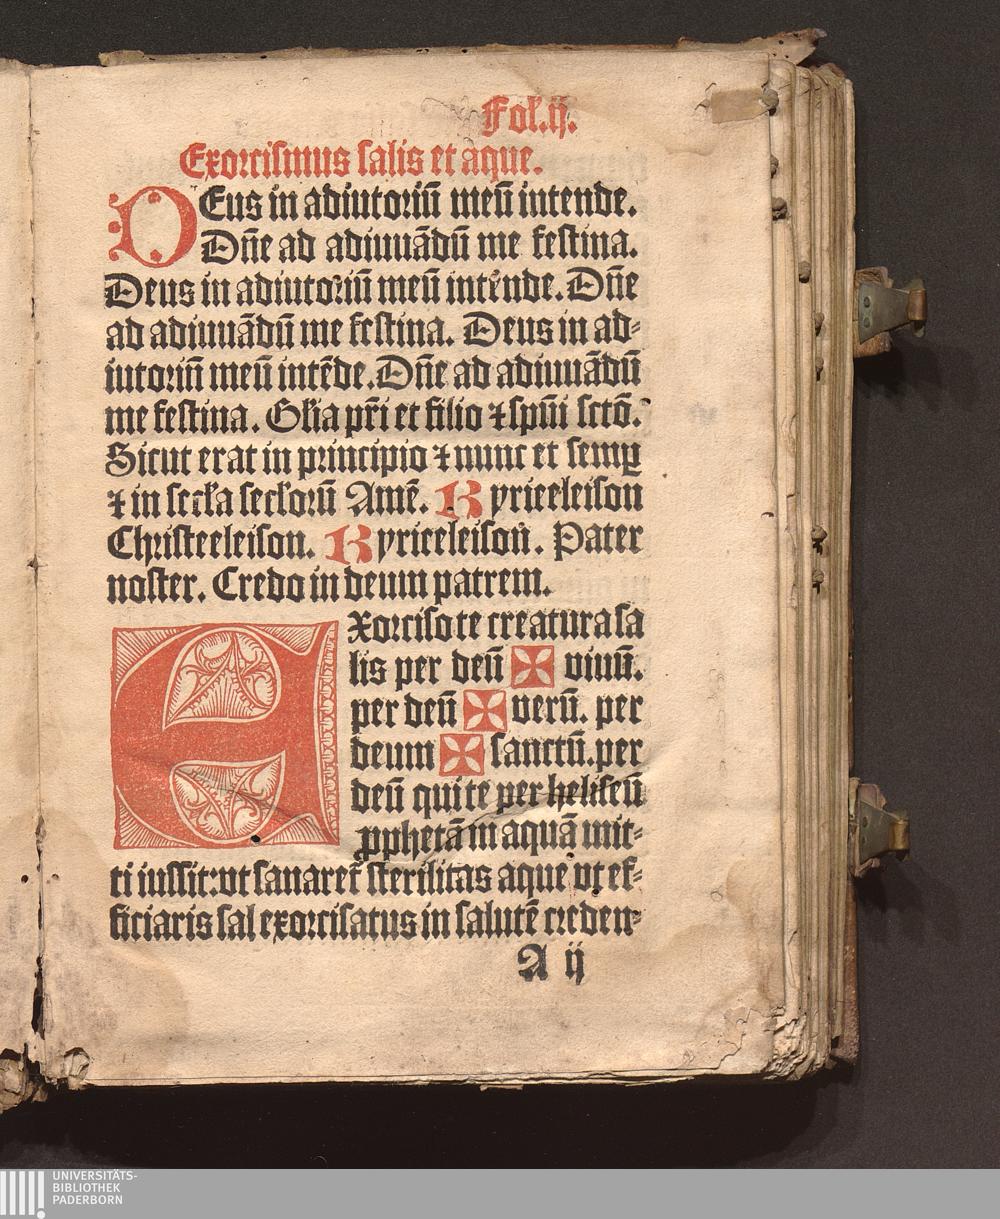 Fol.ij.
Exorcismus salis et aque.
DEus in adiutoriū meū intende.
Dn̄e ad adiuuādū me festina.
Deus in adiutoriū meū intēnde. Dn̄e
ad adiuuādū me festina. Deus in ad⸗
iutoriū meū intēde. Dn̄e ad adiuuādū
me festina. Gl̄ia pr̄i et filio ⁊ spūi sctō.
Sicut erat in principio ⁊ nunc et semꝑ
⁊ in secl̄a secl̄orū Amē. Kyrieeleison
Christeeleison. Kyrieeleison. Pater
noster. Credo in deum patrem.
EXorciso te creatura sa
lis per deū ✠ viuū.
per deū ✠ verū. per
deum ✠ sanctū. per
deū qui te per heliseū
ꝓphetā in aquā mit⸗
ti iussit: vt sanaret᷑ sterilitas aque vt ef⸗
ficiaris sal exorcisatus in salutē creden⸗
A ij
UNIVERSITÄTS-
BIBLIOTHEK
PADERBORN